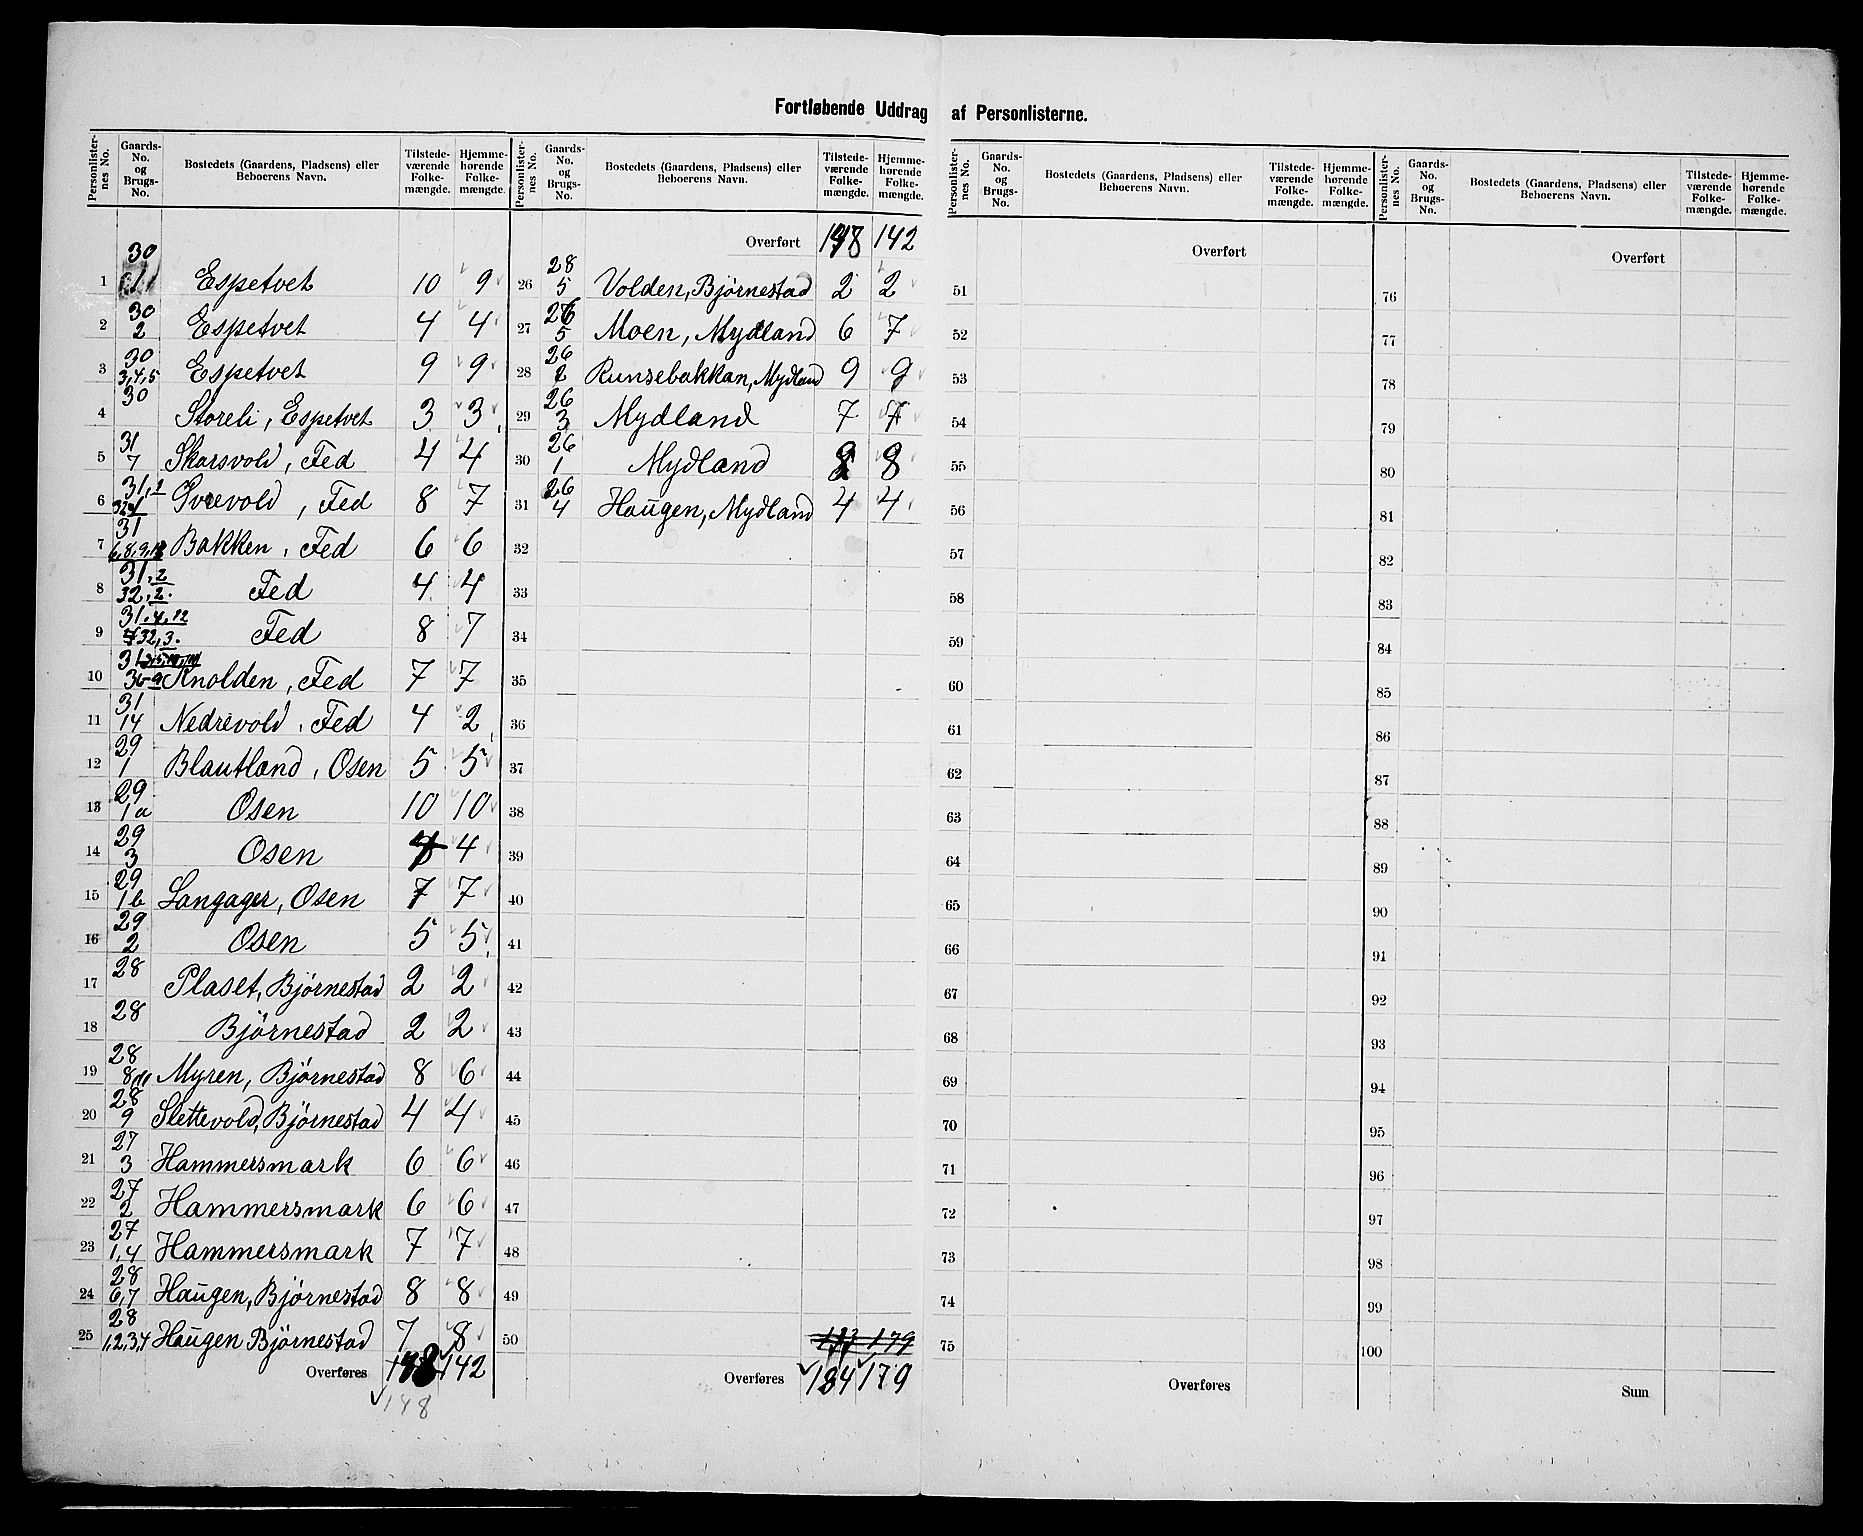 Fortløbende Uddrag af Personlisterne.
Personlisternes No. Gaards-No. og Brugs-No. Bostedets (Gaardens, Pladsens) eller Beboerens Navn. Tilstedeværende Folkemængde. Hjemmehørende Folkemængde.
1 30 1 Espetvet 10 9
2 30 2 Espetvet 4 4
3 30 3,4,5 Espetvet 9 9
4 30 Storeli, Espetvet 3 3
5 31 7 Skarsvold, Fed 4 4
6 31, 32 Øvrevold, Fed 8 7
7 31 6,8,9,13 Bakken, Fed 6 6
8 31,2 32,2. Fed 4 4
9 31.4,12 32,3. Fed 8 7
10 31 Knolden, Fed 7 7
11 31 14 Nedrevold, Fed 4 2
12 29 1 Blautland, Osen 5 5
13 29 1a Osen 10 10
14 29 3 Osen 4 4
15 29 1b Langager, Osen 7 7
16 29 2 Osen 5 5
17 28 Plaset, Bjørnestad 2 2
18 28 Bjørnestad 2 2
19 28 8,11 Myren, Bjørnestad 8 6
20 28 9 Slettevold, Bjørnestad 4 4
21 27 3 Hammersmark 6 6
22 27 2 Hammersmark 6 6
23 27 1,4 Hammersmark 7 7
24 28 6,7 Haugen, Bjørnestad 8 8
25 28 1,2,3,4 Haugen Bjørnestad 7 8
Overføres 148 142
148
Personlisternes No. Gaards-No. og Brugs-No. Bostedets (Gaardens, Pladsens) eller Beboerens Navn. Tilstedeværende Folkemængde. Hjemmehørende Folkemængde.
Overført 148 142
26 28 5 Volden, Bjørnestad 2 2
27 26 5 Moen, Mydland 6 7
28 26 2 Runsebakkan, Mydland 9 9
29 26 3 Mydland 7 7
30 26 1 Mydland 8 8
31 26 4 Haugen, Mydland 4 4
32
33
34
35
36
37
38
39
40
41
42
43
44
45
46
47
48
49
50 179
Overføres 184 179
Personlisternes No. Gaards-No. og Brugs-No. Bostedets (Gaardens, Pladsens) eller Beboerens Navn. Tilstedeværende Folkemængde. Hjemmehørende Folkemængde.
Overført
51
52
53
54
55
56
57
58
59
60
61
62
63
64
65
66
67
68
69
70
71
72
73
74
75
Overføres
Personlisternes No. Gaards-No. og Brugs-No. Bostedets (Gaardens, Pladsens) eller Beboerens Navn. Tilstedeværende Folkemængde. Hjemmehørende Folkemængde.
Overført
76
77
78
79
80
81
82
83
84
85
86
87
88
89
90
91
92
93
94
95
96
97
98
99
100
Sum